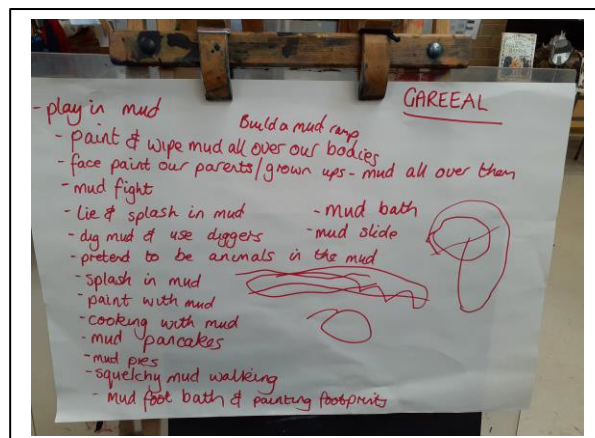 GAREEAL
- play in mud
Build a mud ramp
- paint & wipe mud all over our bodies
- face paint our parents/grown ups - mud all over them
- mud fight
- lie & splash in mud
- mud bath
- dig mud & use diggers
- mud slide
- pretend to be animals in the mud
- splash in mud
- paint with mud
- cooking with mud
- mud pancakes
- mud pies
- squelchy mud walking
- mud foot bath & painting footprints